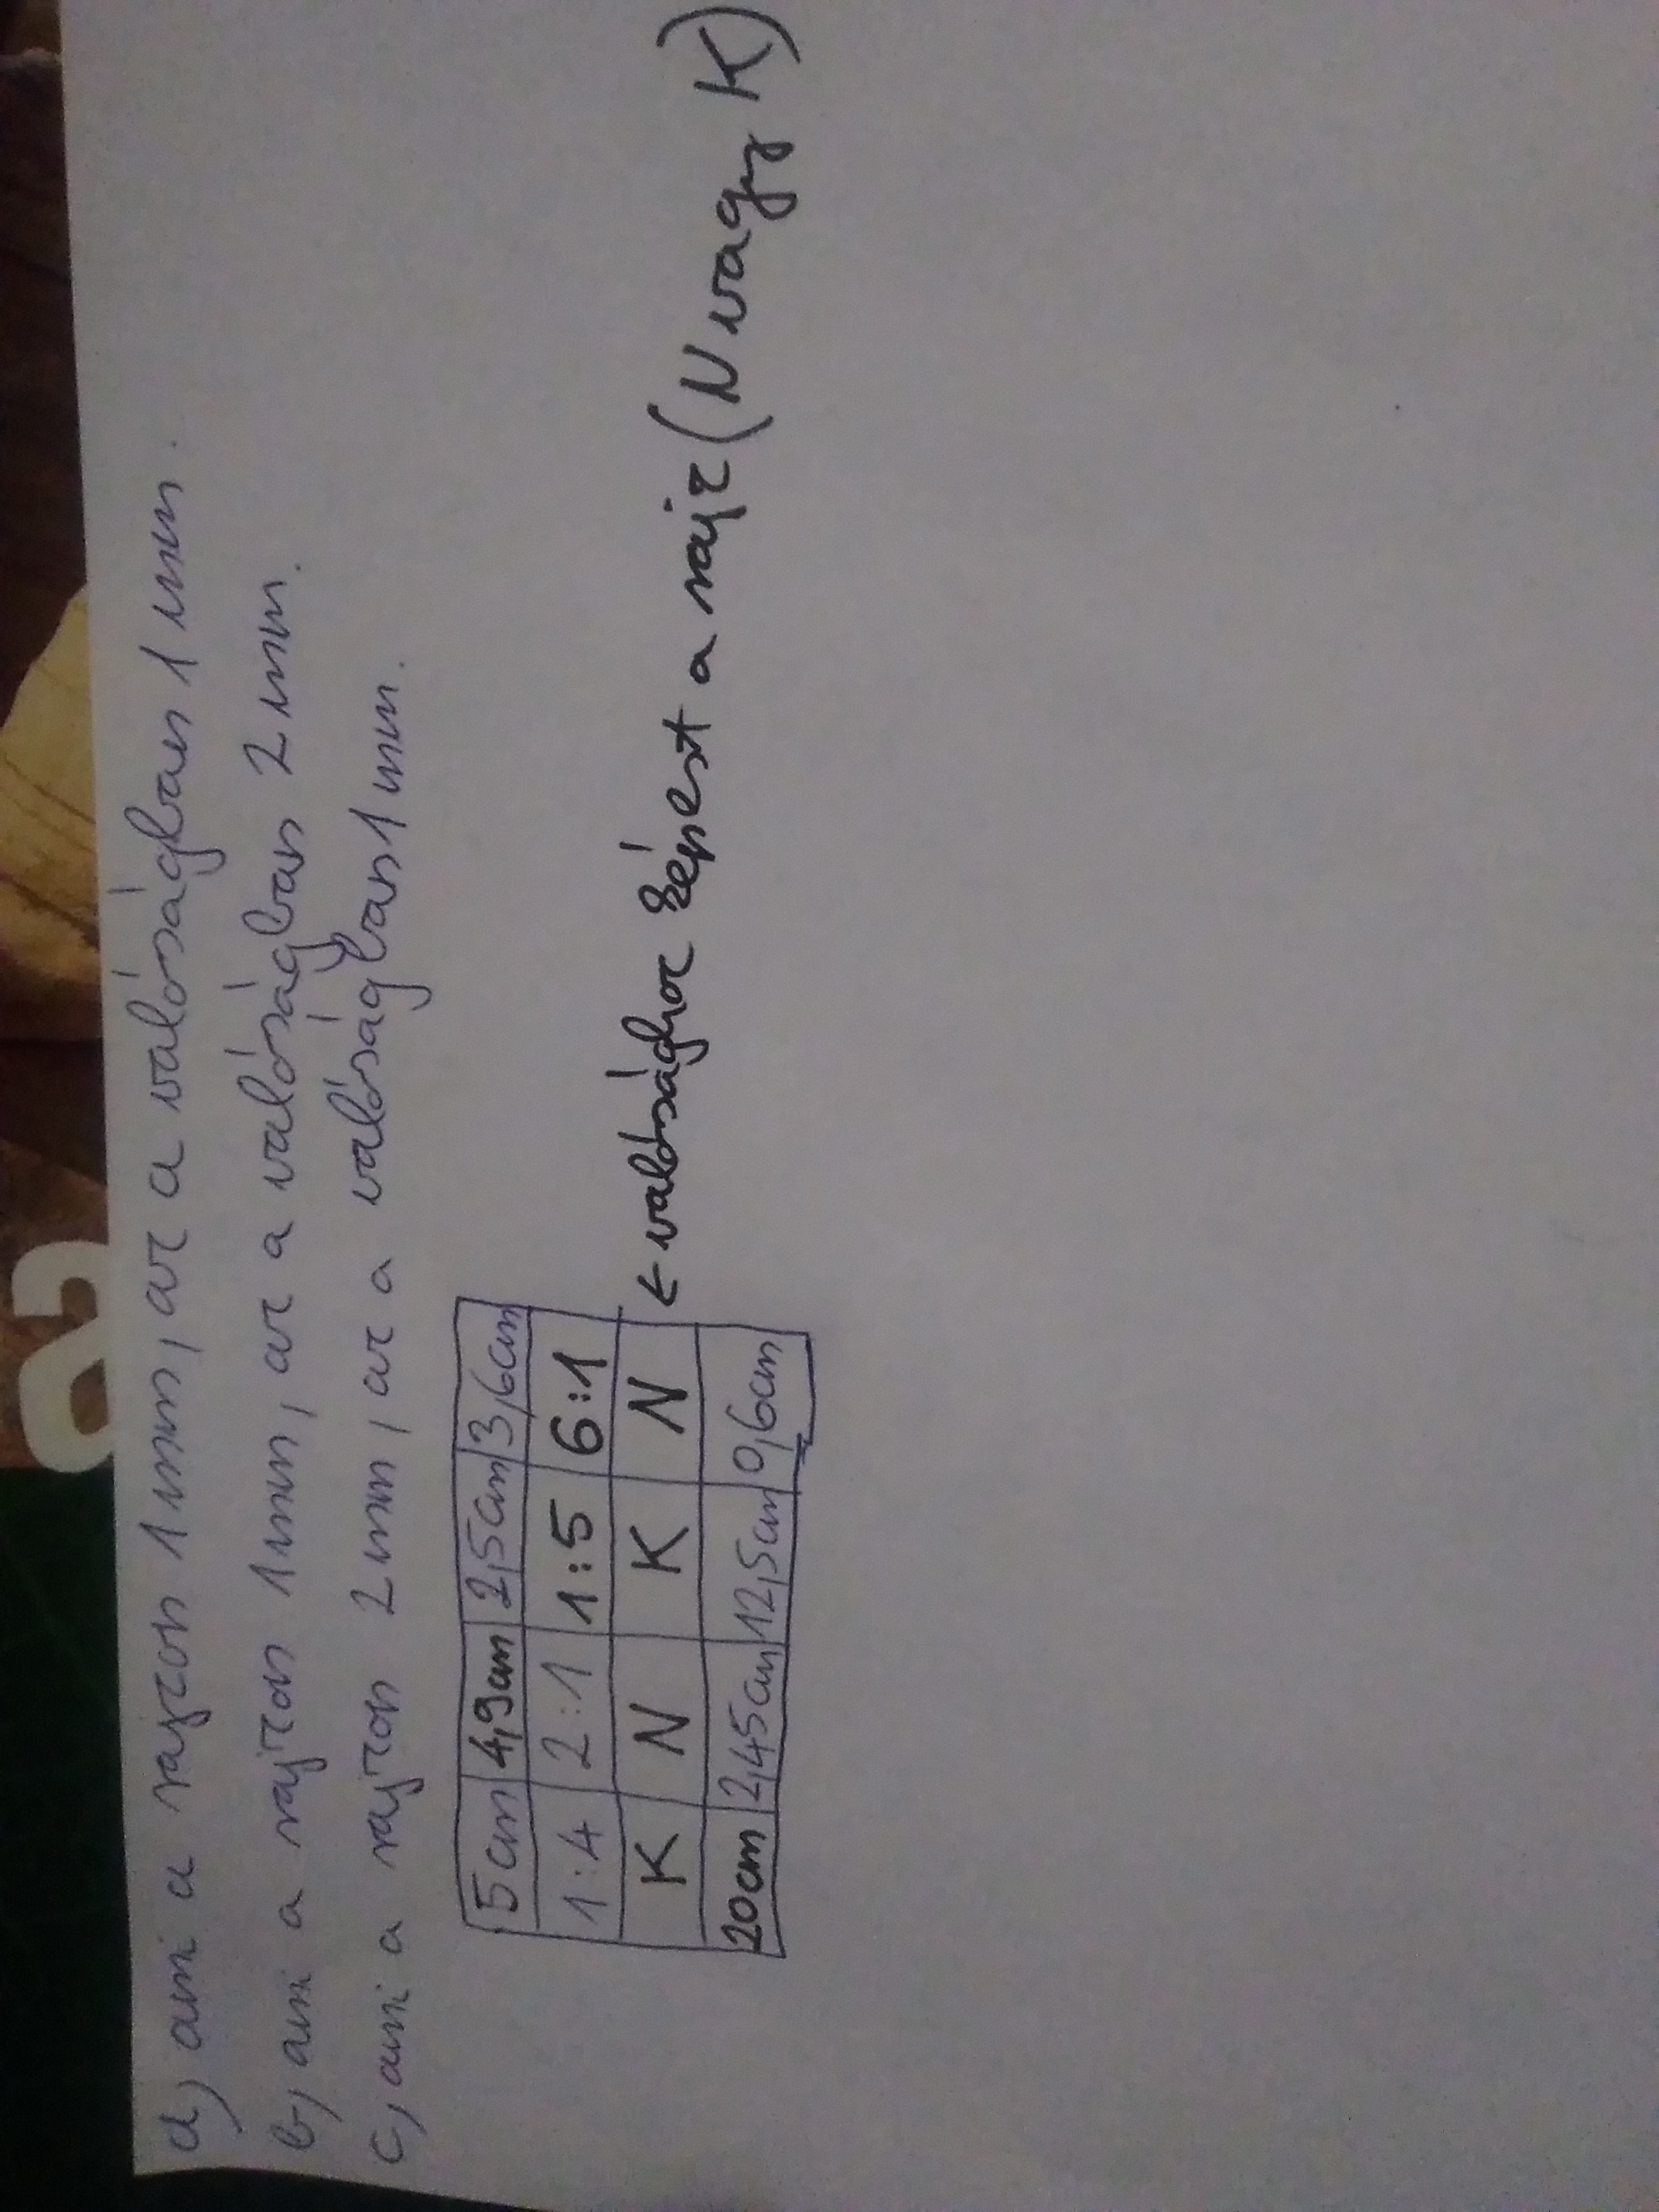 a) ami a rajzon 1 mm, az a valóságban 1 mm.
b) ami a rajzon 1 mm, az a valóságban 2 mm.
c) ami a rajzon 2 mm, az a valóságban 1 mm.
5 cm 4,9 cm 2,5 cm 3,6 cm
1:4 2:1 1:5 6:1
K N K N ← valósághoz képest a rajz (N vagy K)
20 cm 2,45 cm 12,5 cm 0,6 cm
a